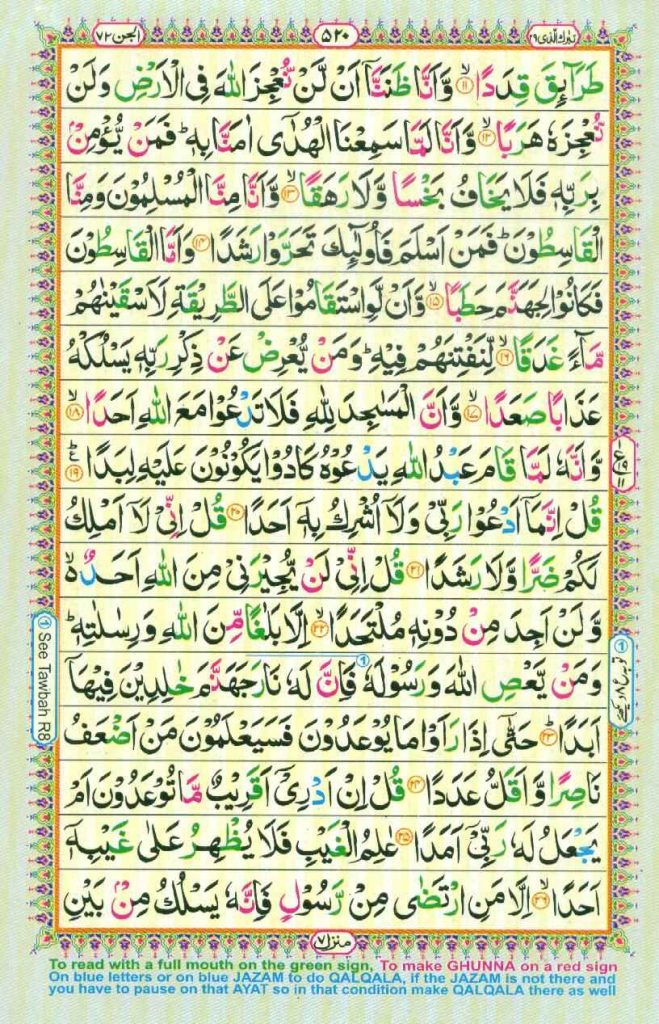 تبٰرك الذی ٢٩
٥٢٠
الجن ٧٢
طَرَآئِقَ قِدَدًا ۙ﴿۱۱﴾ وَّ اَنَّا ظَنَنَّاۤ اَنْ لَّنْ نُّعْجِزَ اللّٰهَ فِی الْاَرْضِ وَ لَنْ
نُّعْجِزَهٗ هَرَبًا ۙ﴿۱۲﴾ وَّ اَنَّا لَمَّا سَمِعْنَا الْهُدٰۤی اٰمَنَّا بِهٖ ؕ فَمَنْ یُّؤْمِنْۢ
بِرَبِّهٖ فَلَا یَخَافُ بَخْسًا وَّ لَا رَهَقًا ۙ﴿۱۳﴾ وَّ اَنَّا مِنَّا الْمُسْلِمُوْنَ وَ مِنَّا
الْقَاسِطُوْنَ ؕ فَمَنْ اَسْلَمَ فَاُولٰٓئِكَ تَحَرَّوْا رَشَدًا ﴿۱۴﴾ وَ اَمَّا الْقَاسِطُوْنَ
فَكَانُوْا لِجَهَنَّمَ حَطَبًا ۙ﴿۱۵﴾ وَّ اَنْ لَّوِ اسْتَقَامُوْا عَلَی الطَّرِیْقَةِ لَاَسْقَیْنٰهُمْ
مَّآءً غَدَقًا ۙ﴿۱۶﴾ لِّنَفْتِنَهُمْ فِیْهِ ؕ وَ مَنْ یُّعْرِضْ عَنْ ذِكْرِ رَبِّهٖ یَسْلُكْهُ
عَذَابًا صَعَدًا ۙ﴿۱۷﴾ وَّ اَنَّ الْمَسٰجِدَ لِلّٰهِ فَلَا تَدْعُوْا مَعَ اللّٰهِ اَحَدًا ۙ﴿۱۸﴾
وَّ اَنَّهٗ لَمَّا قَامَ عَبْدُ اللّٰهِ یَدْعُوْهُ كَادُوْا یَكُوْنُوْنَ عَلَیْهِ لِبَدًا ؕ﴿۱۹﴾
قُلْ اِنَّمَاۤ اَدْعُوْا رَبِّیْ وَ لَاۤ اُشْرِكُ بِهٖۤ اَحَدًا ﴿۲۰﴾ قُلْ اِنِّیْ لَاۤ اَمْلِكُ
لَكُمْ ضَرًّا وَّ لَا رَشَدًا ﴿۲۱﴾ قُلْ اِنِّیْ لَنْ یُّجِیْرَنِیْ مِنَ اللّٰهِ اَحَدٌ ۙ۬
وَّ لَنْ اَجِدَ مِنْ دُوْنِهٖ مُلْتَحَدًا ۙ﴿۲۲﴾ اِلَّا بَلٰغًا مِّنَ اللّٰهِ وَ رِسٰلٰتِهٖ ؕ
وَ مَنْ یَّعْصِ اللّٰهَ وَ رَسُوْلَهٗ فَاِنَّ لَهٗ نَارَ جَهَنَّمَ خٰلِدِیْنَ فِیْهَاۤ
اَبَدًا ؕ﴿۲۳﴾ حَتّٰۤی اِذَا رَاَوْا مَا یُوْعَدُوْنَ فَسَیَعْلَمُوْنَ مَنْ اَضْعَفُ
نَاصِرًا وَّ اَقَلُّ عَدَدًا ﴿۲۴﴾ قُلْ اِنْ اَدْرِیْۤ اَقَرِیْبٌ مَّا تُوْعَدُوْنَ اَمْ
یَجْعَلُ لَهٗ رَبِّیْۤ اَمَدًا ﴿۲۵﴾ عٰلِمُ الْغَیْبِ فَلَا یُظْهِرُ عَلٰی غَیْبِهٖۤ
اَحَدًا ۙ﴿۲۶﴾ اِلَّا مَنِ ارْتَضٰی مِنْ رَّسُوْلٍ فَاِنَّهٗ یَسْلُكُ مِنْۢ بَیْنِ
منزل ٧
See Tawbah R8
To read with a full mouth on the green sign, To make GHUNNA on a red sign
On blue letters or on blue JAZAM to do QALQALA, if the JAZAM is not there and
you have to pause on that AYAT so in that condition make QALQALA there as well